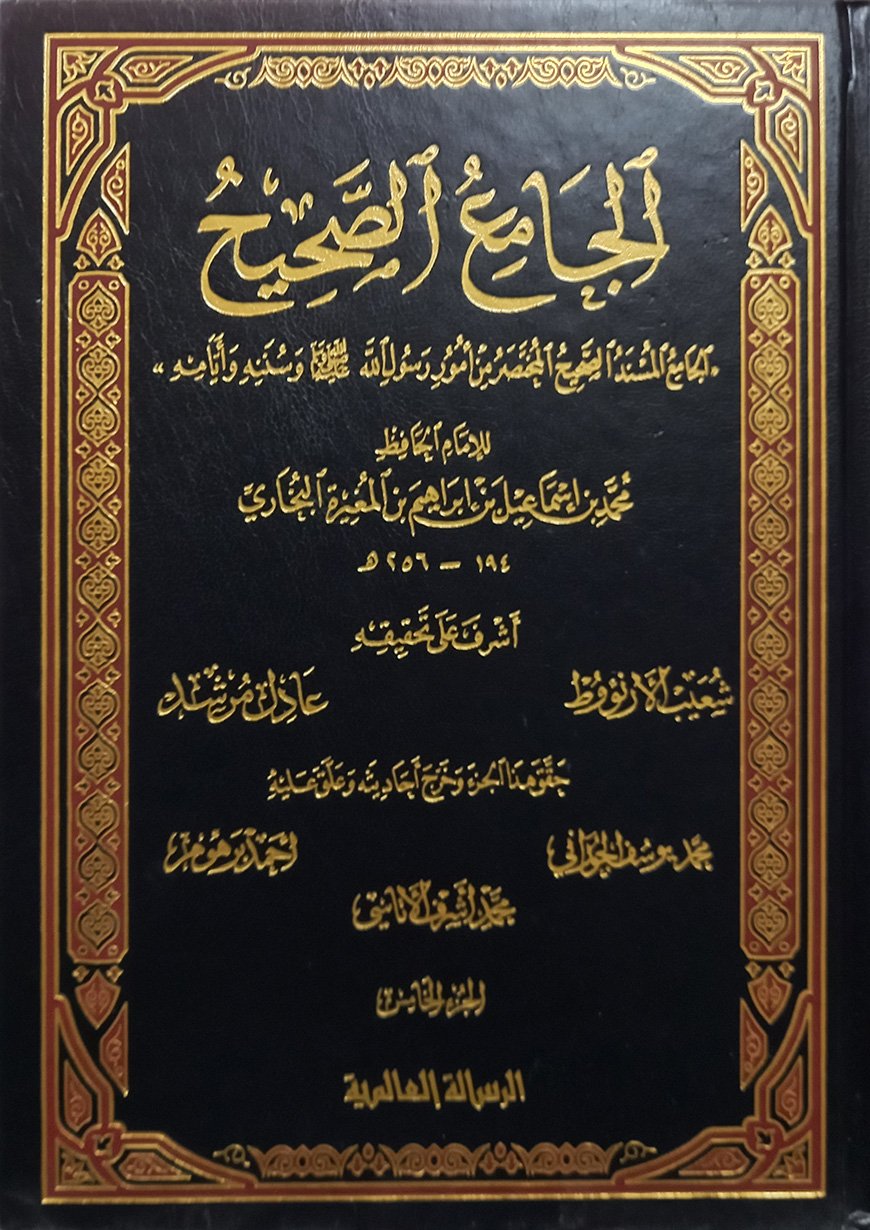 الجَامِعُ الصَّحِيحُ
«الجَامِعُ المُسْنَدُ الصَّحِيحُ المُخْتَصَرُ مِنْ أُمُورِ رَسُولِ اللَّه ﷺ وَسُنَنِهِ وَأَيَّامِهِ»
للإِمَامِ الحَافِظِ
مُحَمَّد بْن إِسْمَاعِيل بْن إبْرَاهِيم بْن المُغِيرَة البُخَارِيِّ
١٩٤ - ٢٥٦ هـ
أَشْرَفَ عَلَى تَحْقِيقِهِ
شُعَيب الأرنؤوط عَادِل مُرشد
حَقَّقَ هَذَا الجُزءَ وَخَرَّجَ أَحَادِيثَه وَعَلَّقَ عَلَيْهِ
محمد يوسف الجوراني أحمد برهوم
محمد أشرف الأتاسي
الجزء الخامس
الرسالة العالمية